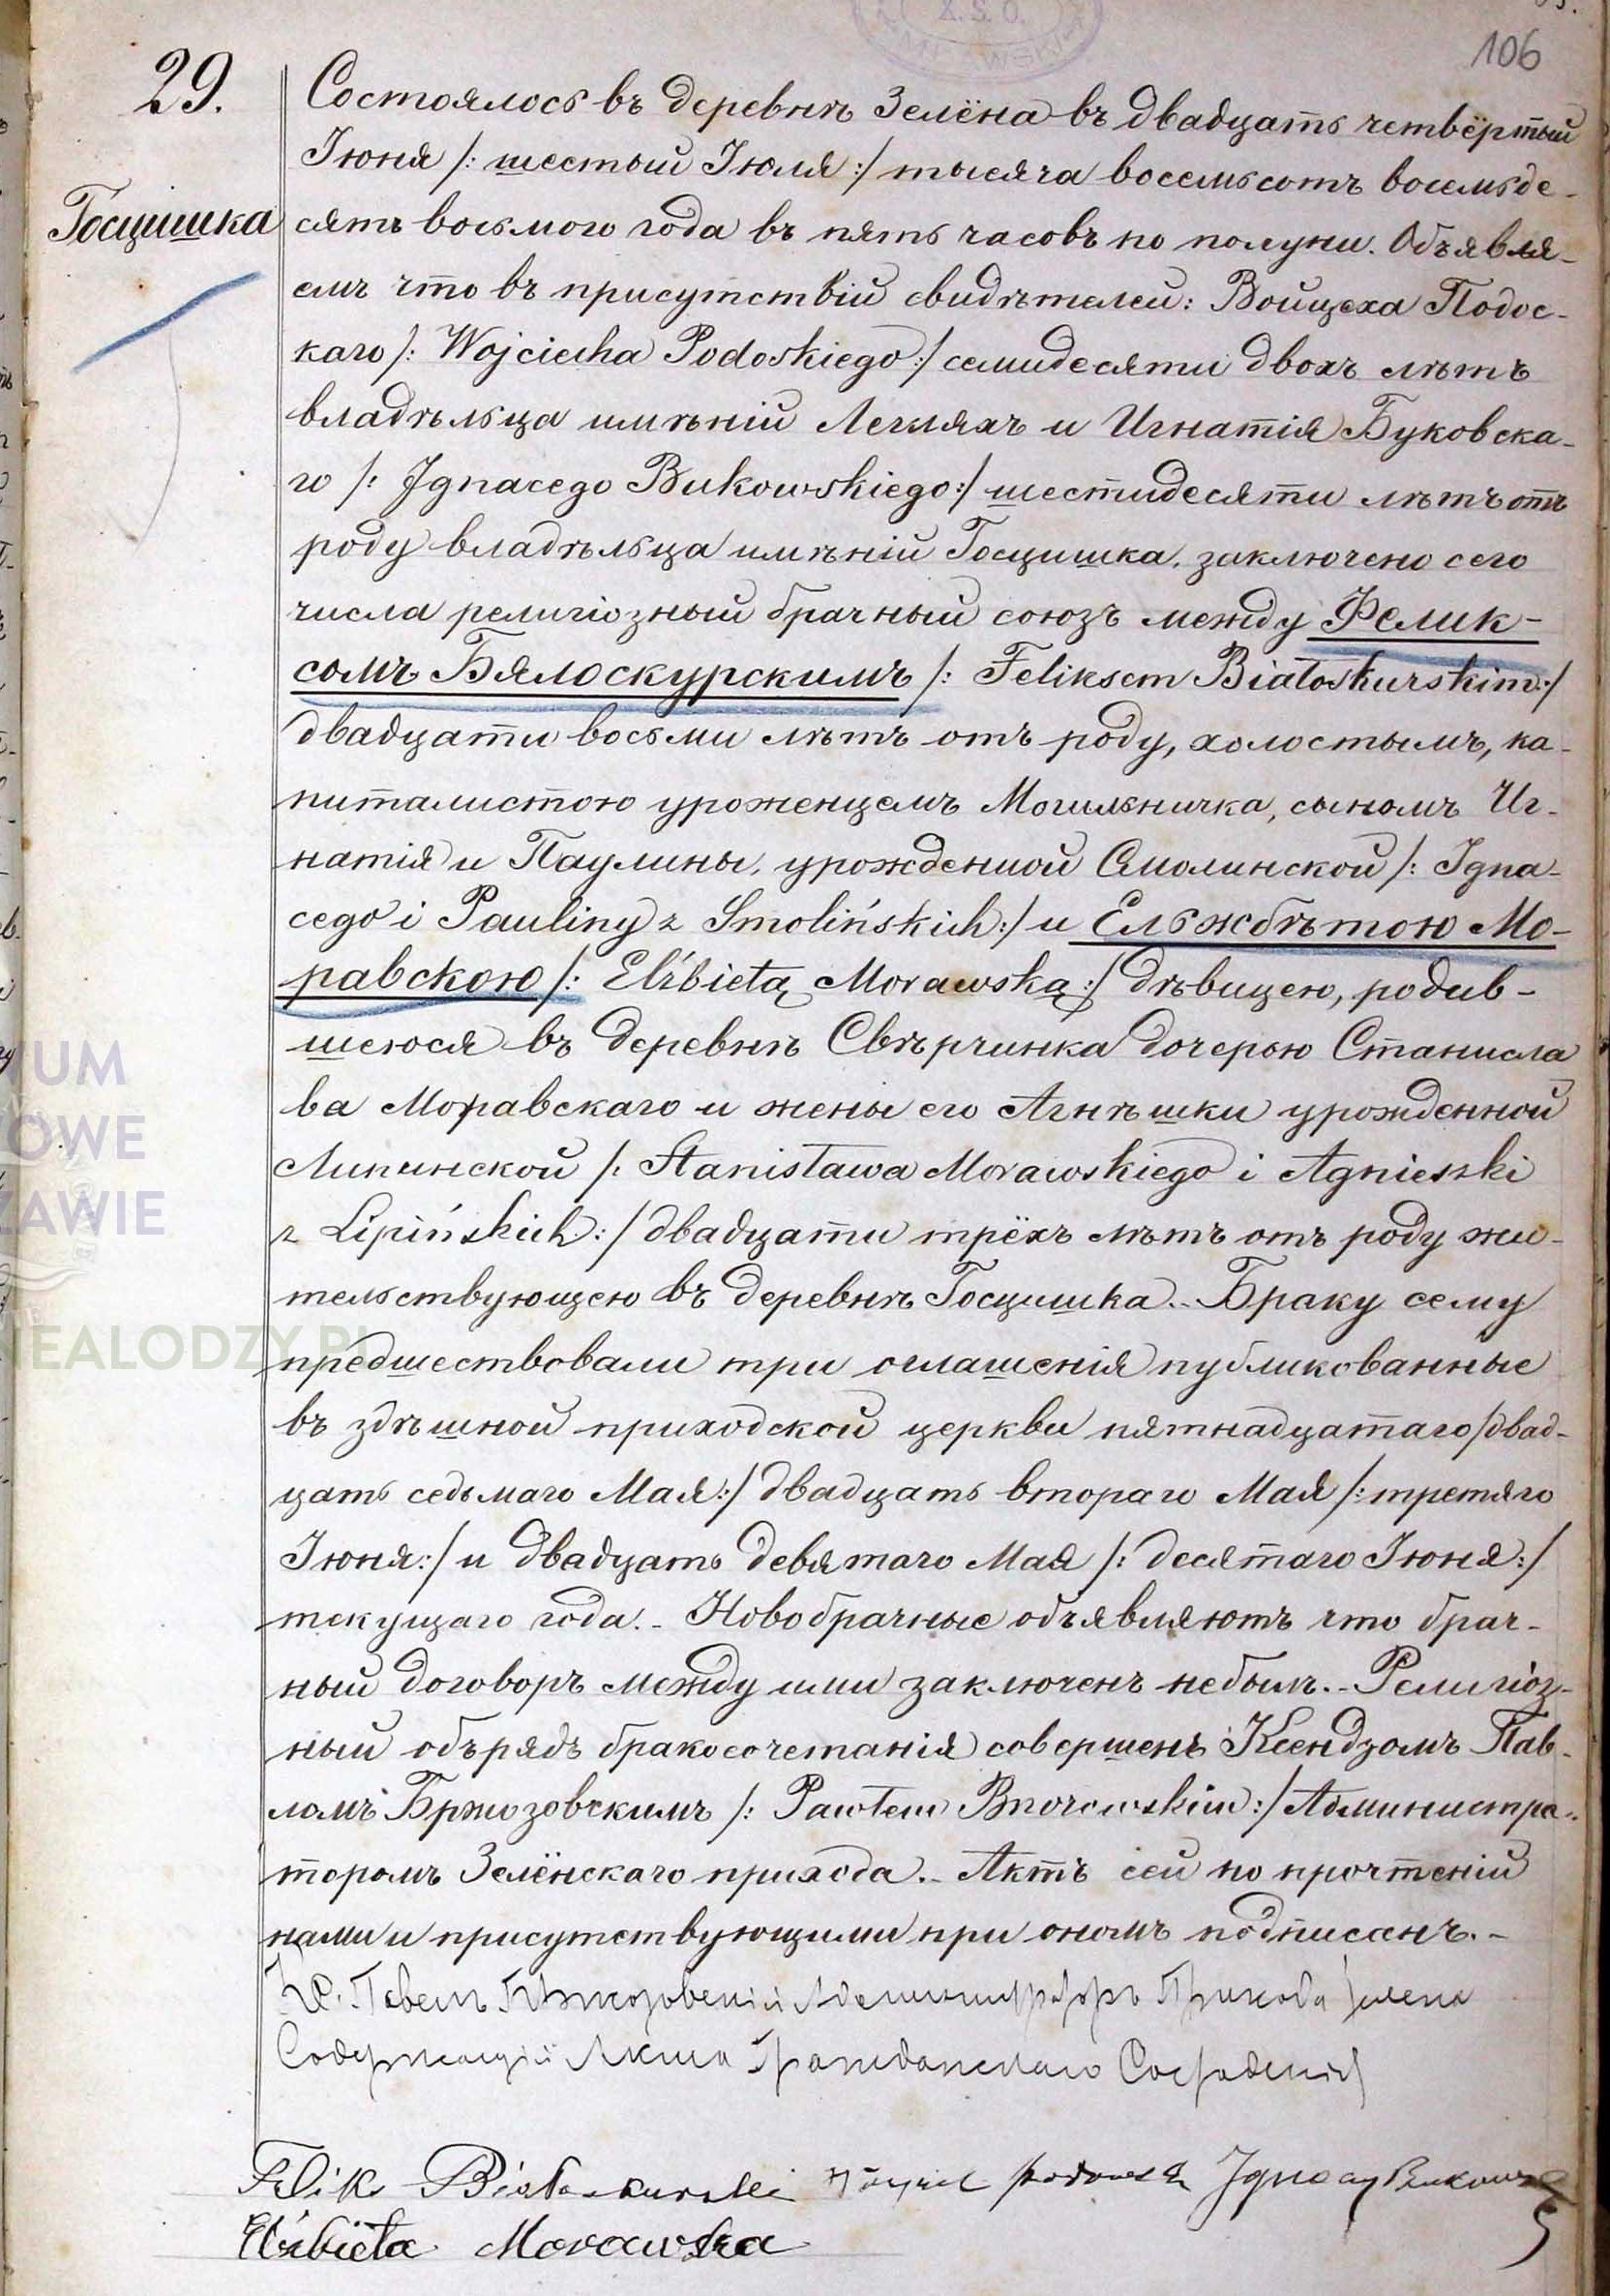 106
29.
Госцишка
Состоялось въ деревнѣ Зелёна въ двадцать четвёртый
Іюня /: шестый Іюля :/ тысяча восемьсотъ восемьде-
сятъ восьмого года въ пять часовъ по полуни. Объявля-
емъ что въ присутствіи свидѣтелей: Войцеха Подос-
каго /: Wojciecha Podoskiego :/ семидесяти двохъ лѣтъ
владѣльца имѣній и Игнатія Буковска-
го /: Jgnacego Bukowskiego :/ шестидесяти лѣтъ отъ
роду владѣльца имѣній Госцишка, заключено сего
числа религіозный брачный союзъ между Фелик-
сомъ Бялоскурскимъ /: Feliksem Białoskurskim :/
двадцати восьми лѣтъ отъ роду, холостымъ, ка-
питалистою уроженцемъ Могильничка, сыномъ Иг-
натія и Паулины, урожденной Смолинской /: Jgna-
cego i Pauliny z Smolińskich :/ и Ельжбѣтою Мо-
равскою /: Elżbietą Morawską :/ дѣвицею, родив-
шеюся въ деревнѣ Свѣрчинка дочерью Станисла
ва Моравскаго и жены его Агнѣшки урожденной
Липинской /: Stanisława Morawskiego i Agnieszki
z Lipińskich :/ двадцати трёхъ лѣтъ отъ роду жи-
тельствующею въ деревнѣ Госцишка.- Браку сему
предшествовали три оглашенія публикованные
въ здѣшной приходской церкви пятнадцатаго /двад-
цать седьмаго Мая :/ двадцать втораго Мая /: третяго
Іюня :/ и двадцать девятаго Мая /: десятаго Іюня :/
текущаго года.- Новобрачные объявляютъ что брач-
ный договоръ между ими заключенъ небылъ.- Религіоз-
ный обърядъ бракосочетанія совершенъ Ксендзомъ Пав-
ломъ Бржозовскимъ /: Pawłem Brzozowskim :/ Администра-
торомъ Зелёнскаго прихода.- Актъ сей по прочтеніи
нами и присутствующими при ономъ подписанъ.-
Кс. Павелъ Бржозовскій Администраторъ Прихода Зелена
Содержащій Акта Гражданскаго Состоянія
Feliks Białoskurski Ignacy Bukowski
Elżbieta Morawska
IUM
OWE
ZAWIE
NEALODZY.PL